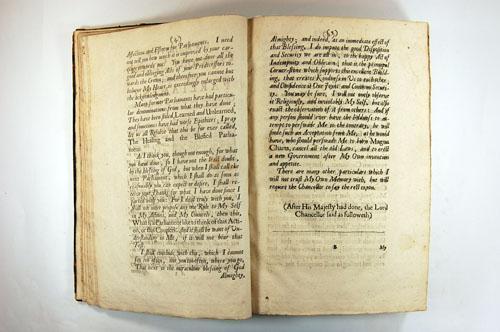 (4)
Affections and Esteem for Parliaments. I need
not tell you how much it is improved by your car-
riage towards me. You have out-done all the
good and obliging Acts of your Predecessors to-
wards the Crown; and therefore you cannot but
believe My Heart is exceedingly enlarged with
the acknowledgment.
Many former Parliaments have had particu-
lar denominations from what they have done;
They have been stiled Learned and Unlearned,
and sometimes have had worse Epithets; I pray
let us all Resolve that this be for ever called,
The Healing and the Blessed Parlia-
ment.
As I thank you, though not enough, for what
you have done, so I have not the least doubt,
by the blessing of God, but when I shall call the
next Parliament, which I shall do as soon as
reasonably you can expect or desire, I shall re-
ceive your Thanks for what I have done since I
parted with you: For I deal truly with you, I
shall not more propose any one Rule to My Self
in My Actions, and My Councels, then this,
What is a Parliament like to think of this Acti-
on, or this Councel: And it shall be want of Un-
derstanding in Me, if it will not bear that
Test.
I shall conclude with this, which I cannot
say too often, nor you too often, where you go,
That next to the miraculous blessing of God
Almighty,
(5)
Almighty; and indeed, as an immediate effect of
that Blessing, I do impute the good Disposition
and Security we are all in, to the happy Act of
Indempnity and Oblivion; that is the principal
Corner-stone which supports this excellent Build-
ing, that creates Kindness in Us to each other,
and Confidence is Our Joynt and Common Secu-
rity. You may be sure, I will not only observe
it Religiously, and inviolably My Self, but also
exact the observation of it from others: And if
any person should ever have the boldness to at-
tempt to perswade Me to the contrary, he will
finde such an Acceptation from Me, as he would
have, who should perswade Me to burn Magna
Charta, cancel all the old Laws, and to erect
a new Government after My Own invention
and appetite.
There are many other particulars which I
will not trust My Own Memory with, but will
require the Chancellor to say the rest to you.
(After His Majesty had done, the Lord
Chancellor said as followeth)
B My